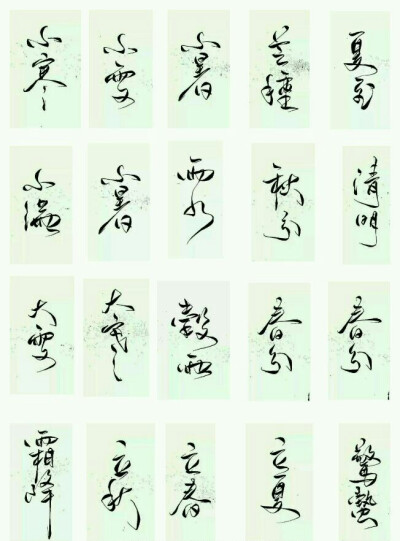 小寒
小雪
小暑
芒種
夏至
小滿
小暑
雨水
秋分
清明
大雪
大寒
穀雨
春分
春分
霜降
立秋
立春
立夏
驚蟄